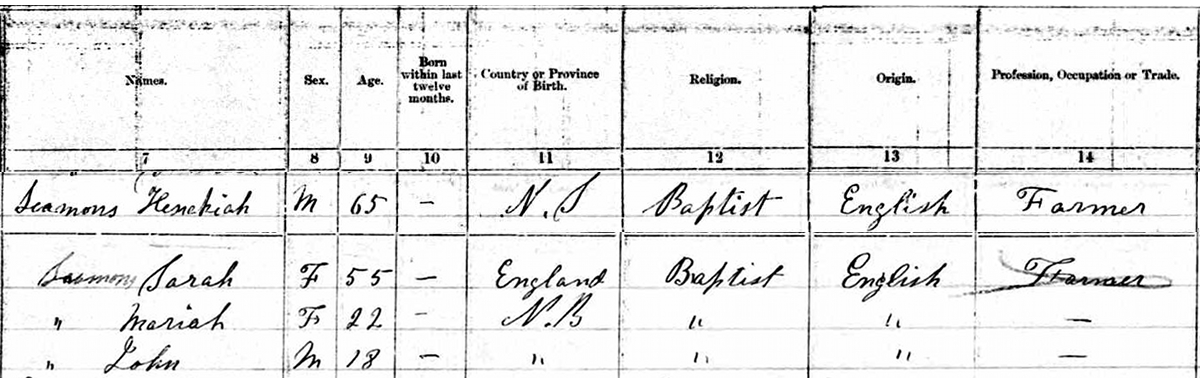 Names. Sex. Age. Born within last twelve months. Country or Province of Birth. Religion. Origin. Profession, Occupation or Trade.
7 8 9 10 11 12 13 14
Seamons Hezekiah M 65 – N.S Baptist English Farmer
Seamons Sarah F 55 – England Baptist English Farmer
" Mariah F 22 – N.B " " –
" John M 18 – " " " –